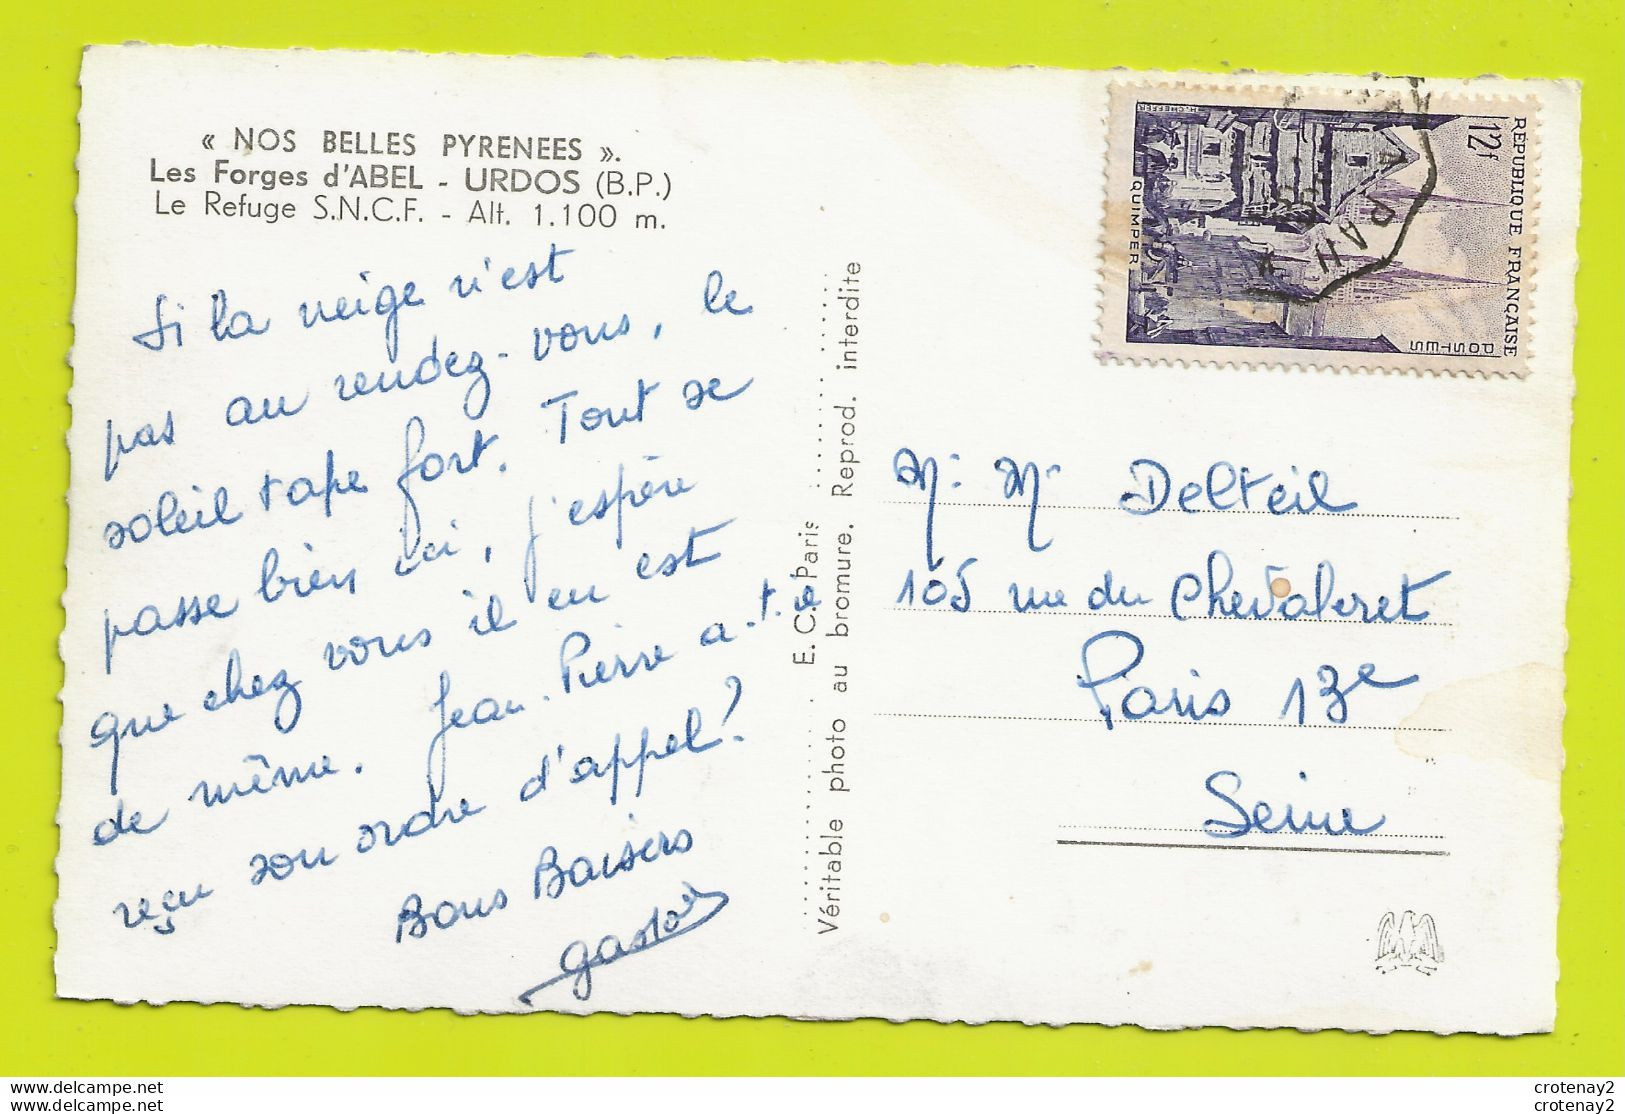 « NOS BELLES PYRENEES ».
Les Forges d'ABEL - URDOS (B.P.)
Le Refuge S.N.C.F. - Alt. 1.100 m.
Si la neige n'est
pas au rendez-vous, le
soleil tape fort. Tout se
passe bien ici, j'espère
que chez vous il en est
de même. Jean-Pierre a-t-il
reçu son ordre d'appel?
Bons Baisers
gaston
E. C. Paris
Véritable photo au bromure. Reprod. interdite
RÉPUBLIQUE FRANÇAISE
12f
POSTES
QUIMPER
H. CHEFFER
PAU
Mr Mr Delteil
105 rue du Chevaleret
Paris 13e
Seine
delcampe.net
delcampe.net
crotenay2
crotenay2